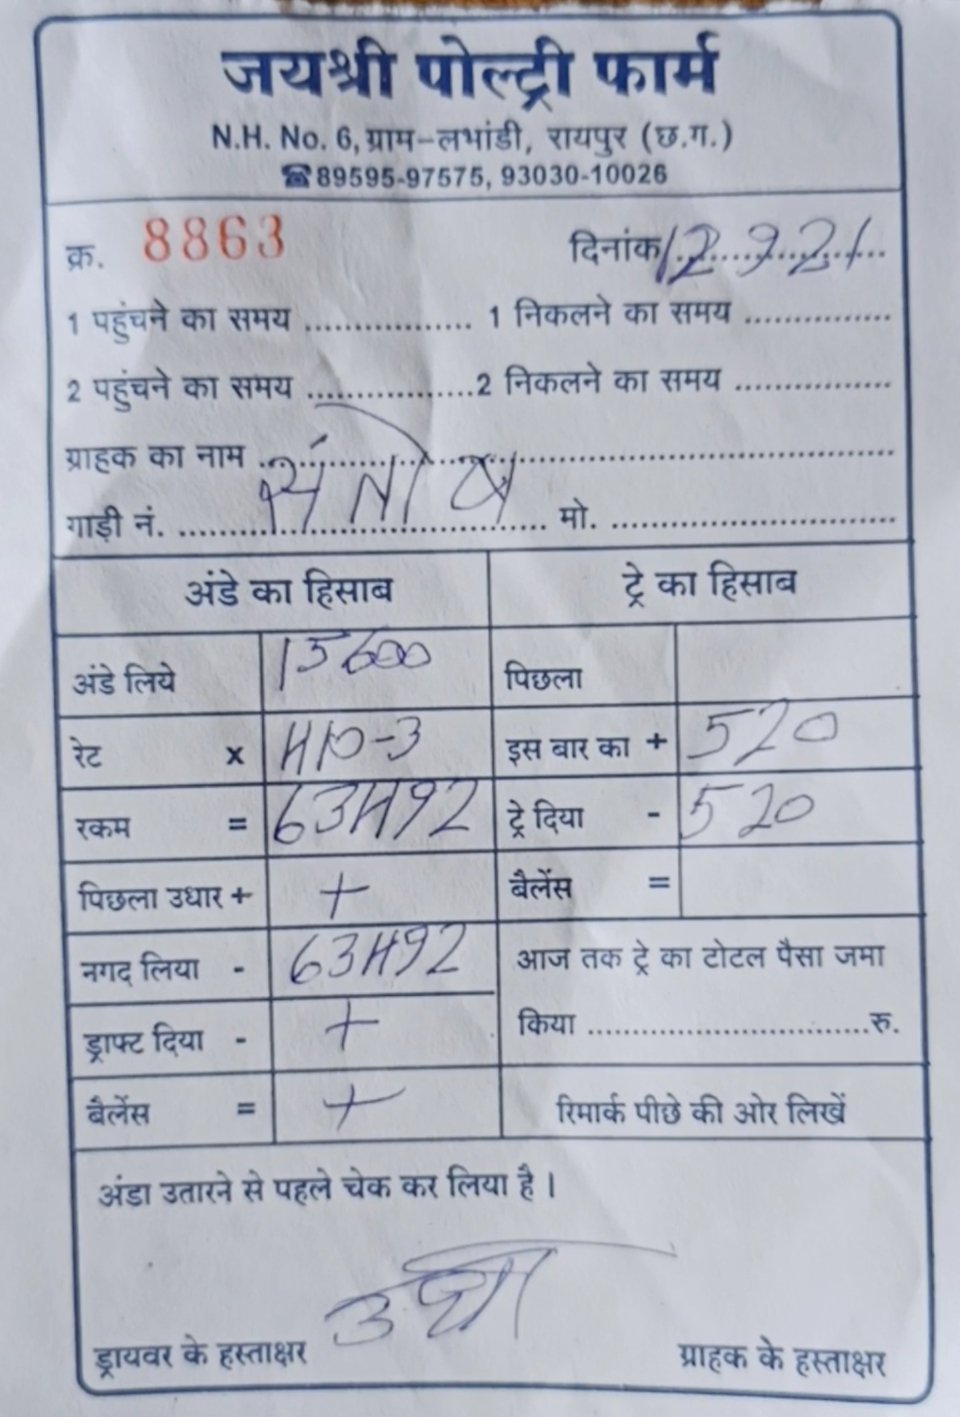 जयश्री पोल्ट्री फार्म
N.H. No. 6, ग्राम-लभांडी, रायपुर (छ.ग.)
☎89595-97575, 93030-10026
क्र. 8863 दिनांक 12.9.21
1 पहुंचने का समय ................ 1 निकलने का समय ..............
2 पहुंचने का समय ................ 2 निकलने का समय ..............
ग्राहक का नाम संतोष
गाड़ी नं. ................................ मो. ............................
अंडे का हिसाब ट्रे का हिसाब
अंडे लिये 15600 पिछला
रेट x 410-3 इस बार का + 520
रकम = 63492 ट्रे दिया - 520
पिछला उधार + + बैलेंस =
नगद लिया - 63492 आज तक ट्रे का टोटल पैसा जमा
ड्राफ्ट दिया - + किया ............................रु.
बैलेंस = + रिमार्क पीछे की ओर लिखें
अंडा उतारने से पहले चेक कर लिया है ।
ड्रायवर के हस्ताक्षर ग्राहक के हस्ताक्षर